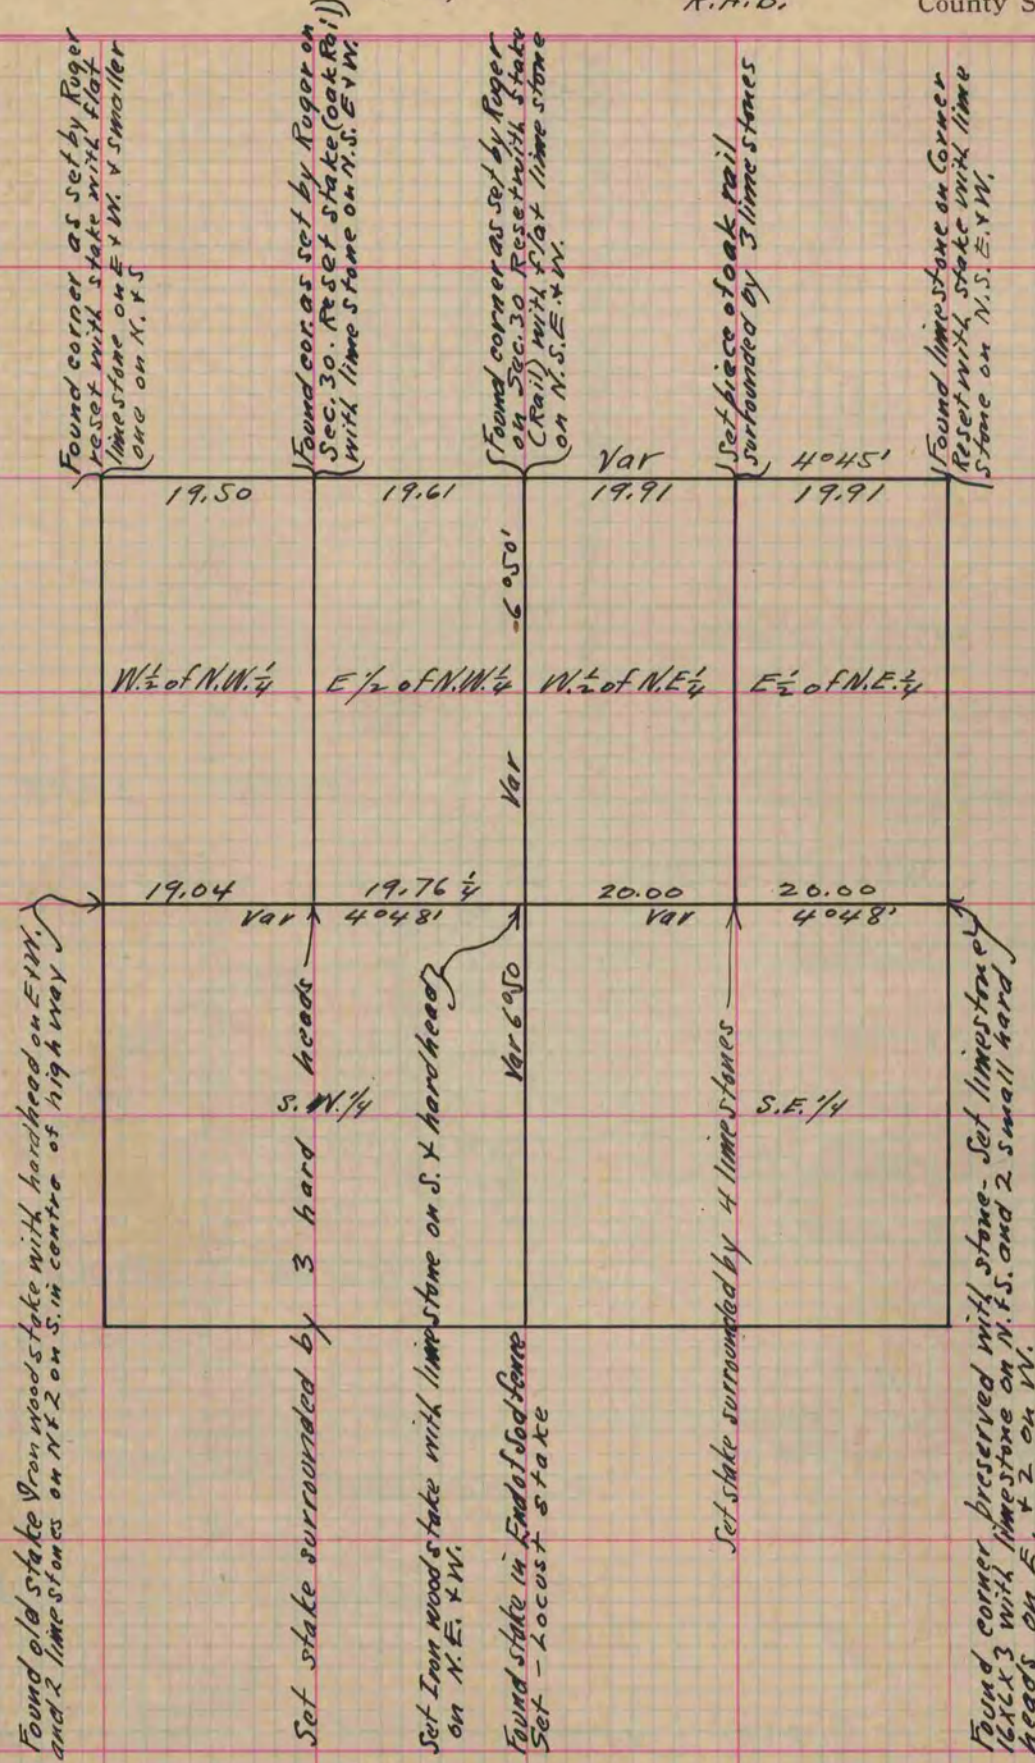 R.A.B.
County S
Found corner as set by Ruger
reset with stake with flat
limestone on E & W. & smaller
one on N. & S
Found cor. as set by Ruger on
Sec. 30. Reset stake (oak Rail)
with lime stone on N.S. E & W.
Found corner as set by Ruger
on Sec. 30 Reset with stake
(Rail) with flat lime stone
on N.S.E. & W.
Set piece of oak rail
surrounded by 3 lime stones
Found limestone on Corner
Reset with stake with lime
stone on N.S.E. & W.
Var 4°45'
19.50 19.61 19.91 19.91
Var 6°50'
W.½ of N.W.¼ E ½ of N.W.¼ W.½ of N.E¼ E½ of N.E.¼
19.04 19.76 ¼ 20.00 20.00
Var 4°48' Var 4°48'
Var 6°50
S.W.¼ S.E.¼
Found old stake Iron wood stake with hardhead on E & W.
and 2 limestones on N & 2 on S. in centre of highway
Set stake surrounded by 3 hard heads
Set Iron wood stake with limestone on S. & hardhead
on N.E. & W.
Found stake in End of Sod fence
Set - Locust stake
Set stake surrounded by 4 limestones
Found corner preserved with stone - Set limestone
16X6X3 with limestone on N. & S. and 2 small hard
heads on E. & 2 on W.